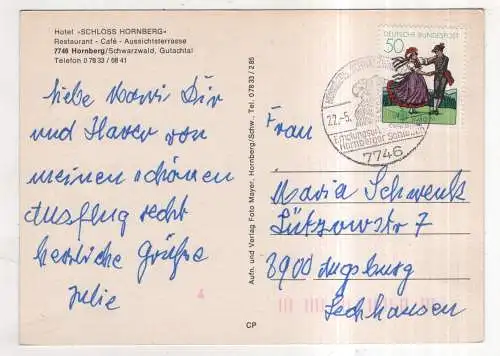 Hotel »SCHLOSS HORNBERG«
Restaurant - Café - Aussichtsterrasse
7746 Hornberg/Schwarzwald, Gutachtal
Telefon 0 78 33 / 68 41
liebe Mari Dir
und Xaver von
meinen schönen
Ausflug recht
herzliche Grüße
Julie
Aufn. und Verlag Foto Meyer, Hornberg/Schw., Tel. 07833/285
CP
DEUTSCHE BUNDESPOST
50
22.-5.
Hornberger Schießen
7746
Frau
Maria Schwenk
Lützowstr 7
8900 Augsburg
Lechhausen
4